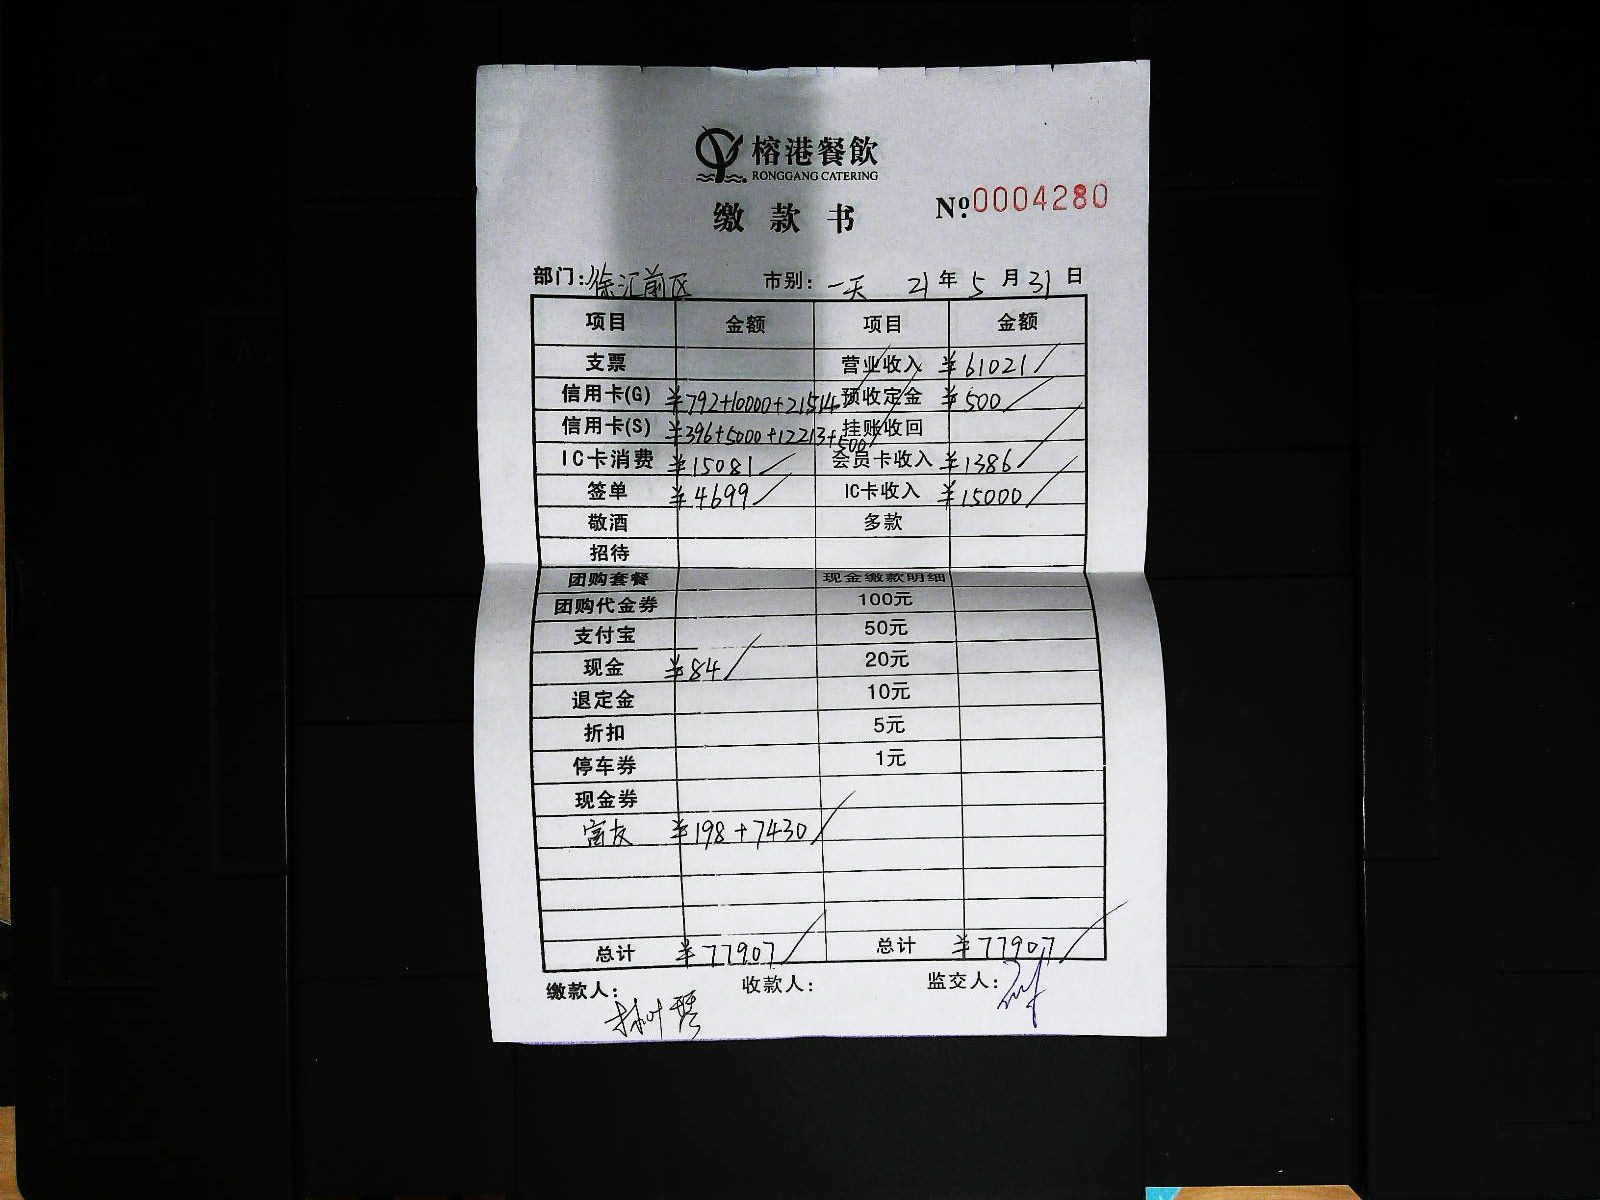 榕港餐飲
RONGGANG CATERING
缴款书
Nº:0004280
部门:徐汇前区 市别:一天 21年5月31日
项目 金额 项目 金额
支票 营业收入 ¥61021
信用卡(G) ¥792+10000+21514 预收定金 ¥500
信用卡(S) ¥396+5000+12213+500 挂账收回
IC卡消费 ¥15081 会员卡收入 ¥1386
签单 ¥4699 IC卡收入 ¥15000
敬酒 多款
招待
团购套餐 现金缴款明细
团购代金券 100元
支付宝 50元
现金 ¥84 20元
退定金 10元
折扣 5元
停车券 1元
现金券
富友 ¥198+7430
总计 ¥77907 总计 ¥77907
缴款人: 收款人: 监交人: